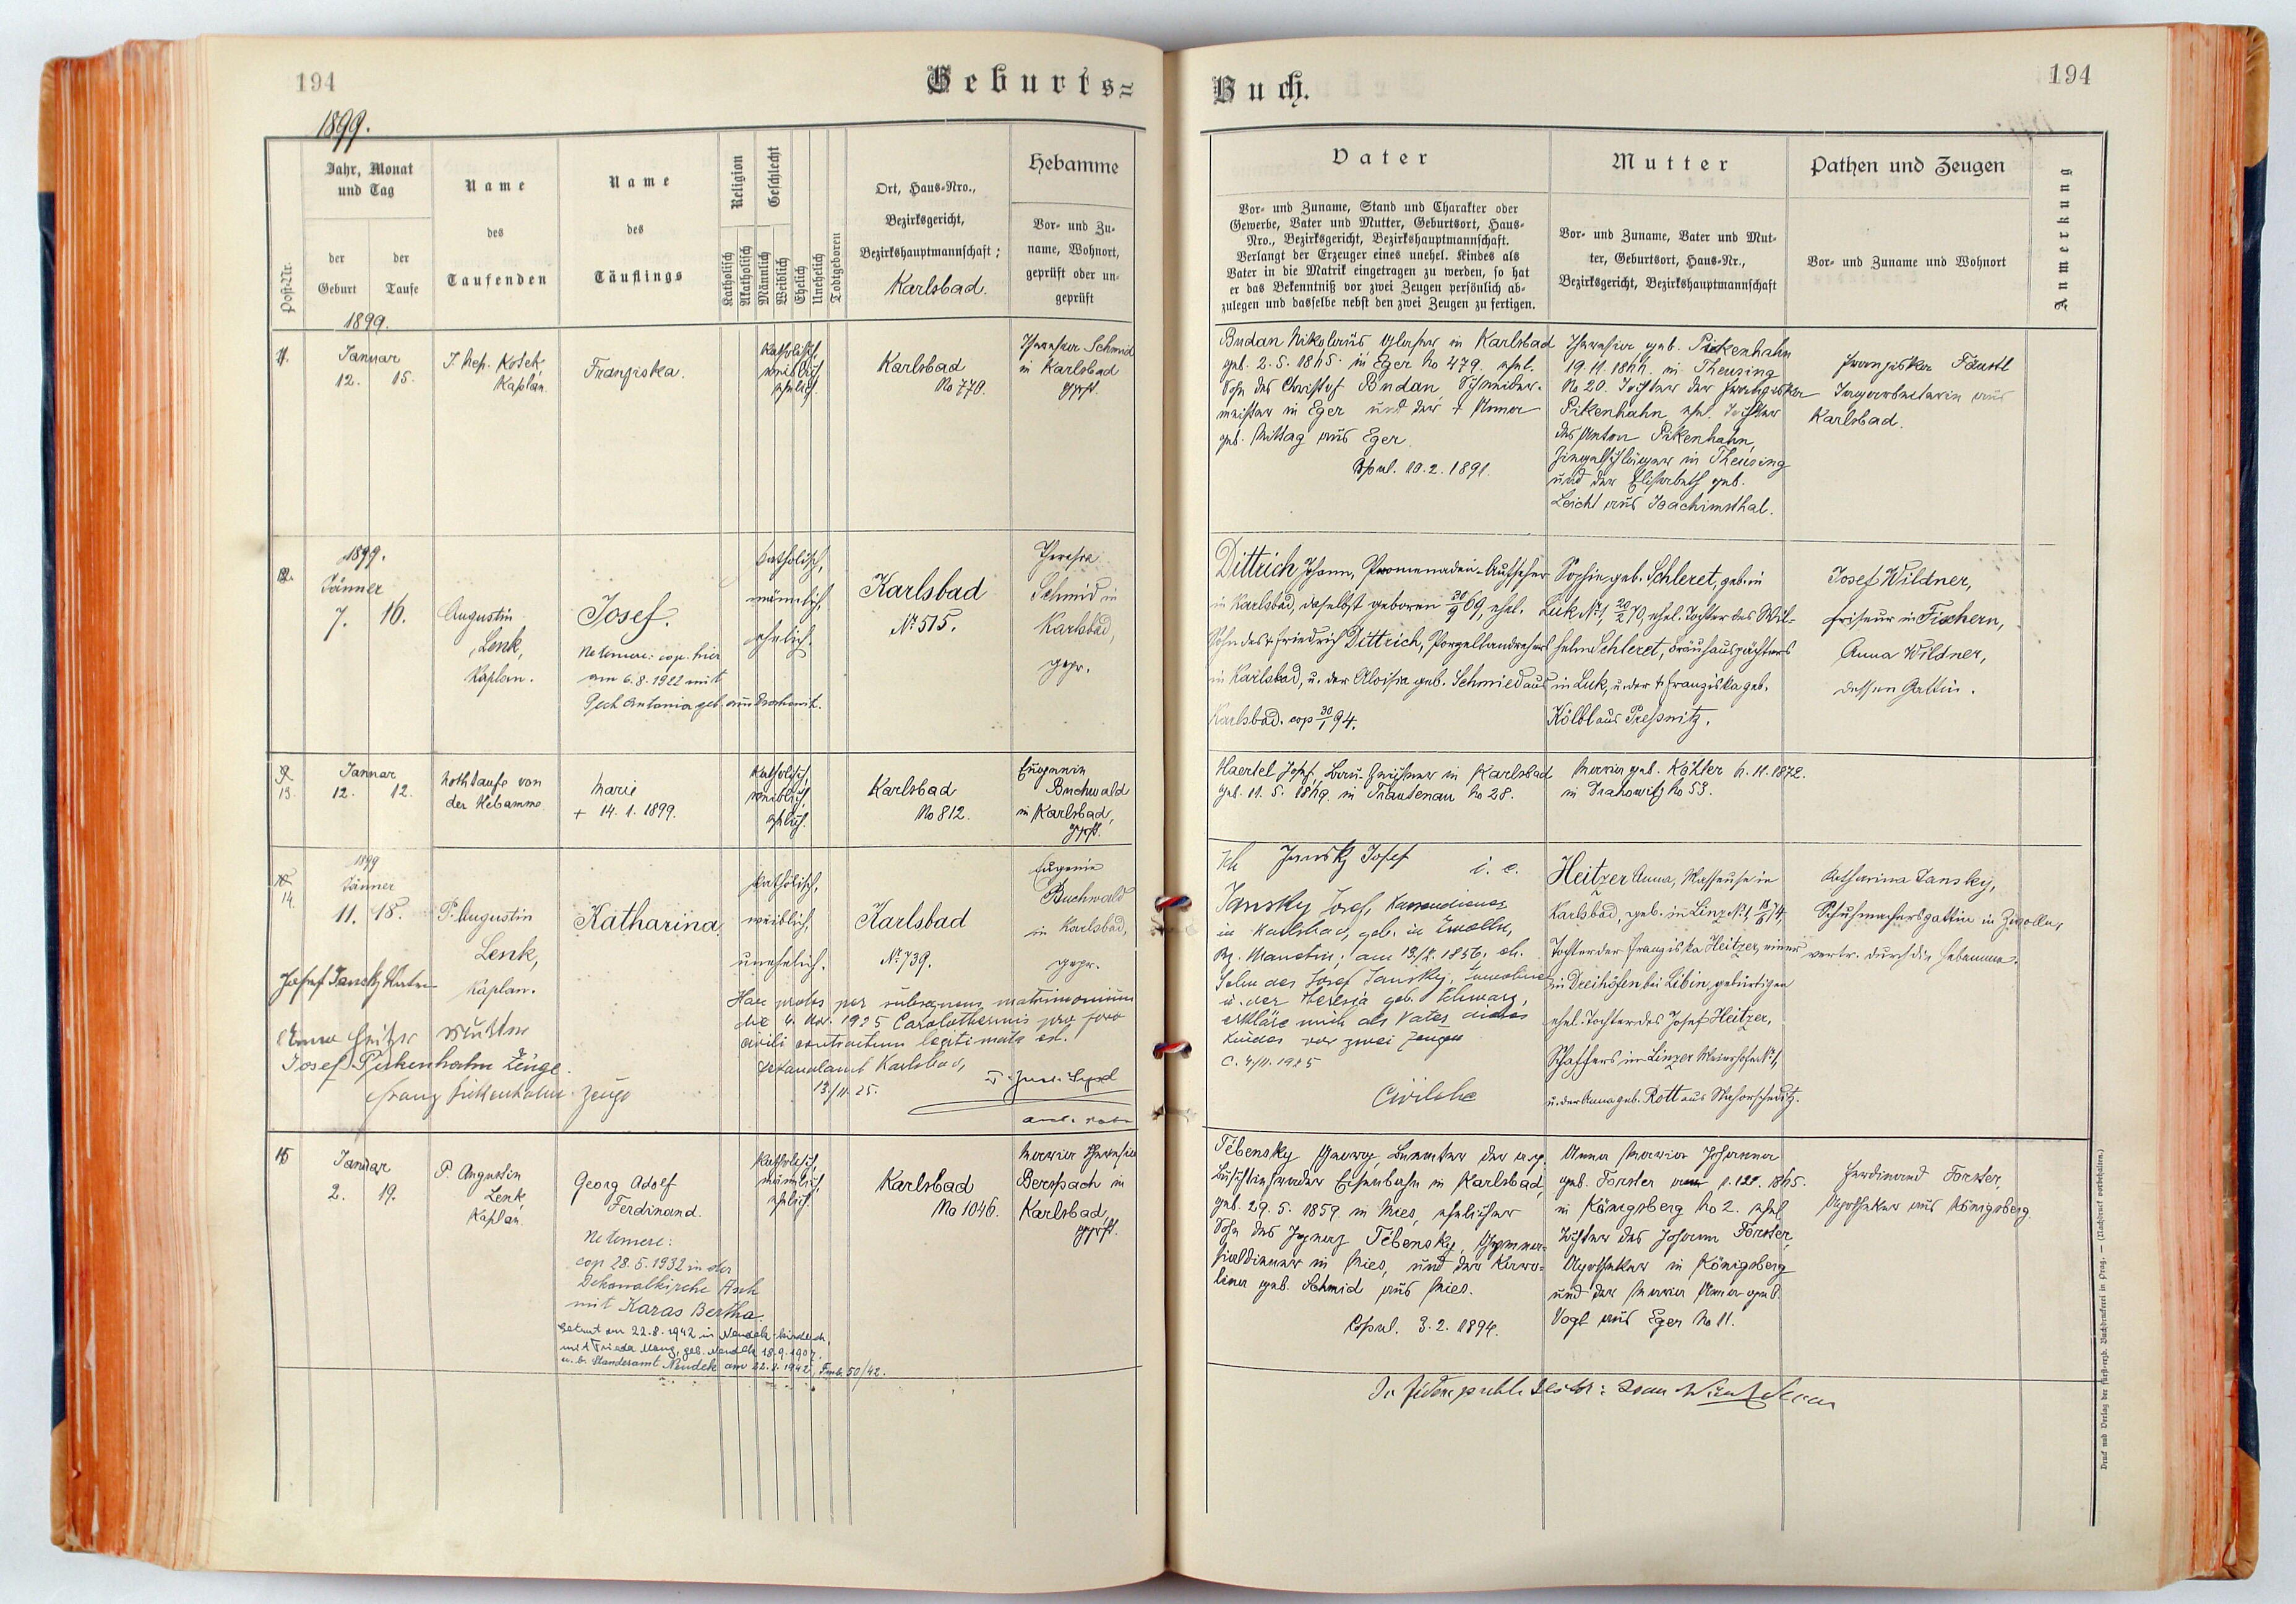 194
Geburts=
1899.
Post-Nr.
Jahr, Monat
und Tag
der
Geburt
der
Taufe
Name
des
Taufenden
Name
des
Täuflings
Religion
Katholisch
Akatholisch
Geschlecht
Männlich
Weiblich
Ehelich
Unehelich
Todtgeboren
Ort, Haus-Nro.,
Bezirksgericht,
Bezirkshauptmannschaft:
Karlsbad.
Hebamme
Vor- und Zu-
name, Wohnort,
geprüft oder un-
geprüft
1899.
11.
Januar
12. 15.
J. Nep. Kosek
Kaplan.
Franziska.
Katholisch,
weiblich
ehelich.
Karlsbad
No 770.
Theresia Schmid
in Karlsbad
gprft.
1899.
12.
Jänner
7. 16.
Augustin
Lenk,
Kaplan.
Josef.
Ne temere: cop. hier
am 6.8.1922 mit
Pech Antonia geb. aus
katholisch,
männlich,
ehelich.
Karlsbad
Nr. 515.
Theresia
Schmid in
Karlsbad,
gepr.
13.
Januar
12. 12.
Nothtaufe von
der Hebamme.
Marie
+ 14. 1. 1899.
Katholisch,
weiblich,
ehelich.
Karlsbad
No 812.
Eugenie
Buchwald
in Karlsbad,
gprft.
1899
14.
Jänner
11. 18.
P. Augustin
Lenk,
Kaplan.
Katharina
katholisch,
weiblich,
unehelich.
Karlsbad
Nr. 739.
Eugenie
Buchwald
in Karlsbad,
gepr.
Josef Jansky Vater
Anna Heitzer Mutter
Josef Pickenhahn Zeuge.
Franz Pickenhahn Zeuge
Haec proles per subsequens matrimonium
die 4. Nov. 1925 Carolothermis pro foro
civili contractum legitimata est.
Dekanalamt Karlsbad,
13/11. 25.
15
Januar
2. 19.
P. Augustin
Lenk
Kaplan.
Georg Adolf
Ferdinand.
Ne temere:
cop 28.5.1932 in der
Dekanalkirche Asch
mit Karas Bertha.
Getraut am 22.8.1942 in Neudek
mit Frieda geb. Neudek 18.9.1907.
u. b. Standesamt Neudek am 22.8.1942, Fmb. 50/42.
Katholisch,
männlich,
ehelich.
Karlsbad
No 1046.
Maria Theresia
Berspach in
Karlsbad,
gprft.
Buch.
194
Vater
Vor- und Zuname, Stand und Charakter oder
Gewerbe, Vater und Mutter, Geburtsort, Haus-
Nro., Bezirksgericht, Bezirkshauptmannschaft.
Verlangt der Erzeuger eines unehel. Kindes als
Vater in die Matrik eingetragen zu werden, so hat
er das Bekenntniß vor zwei Zeugen persönlich ab-
zulegen und dasselbe nebst den zwei Zeugen zu fertigen.
Mutter
Vor- und Zuname, Vater und Mut-
ter, Geburtsort, Haus-Nr.,
Bezirksgericht, Bezirkshauptmannschaft
Pathen und Zeugen
Vor- und Zuname und Wohnort
Anmerkung
Budan Nikolaus Glaser in Karlsbad
geb. 2. 5. 1845. in Eger No 479, ehel.
Sohn des Christof Budan, Schneider-
meister in Eger und der + Anna
geb. Mittag aus Eger.
Copul. 10. 2. 1891.
Theresia geb. Pickenhahn
19. 11. 1844. in Theusing
No 20. Tochter der Franziska
Pikenhahn ehel. Tochter
des Anton Pikenhahn,
in Theusing
und der Elisabeth geb.
Leicht aus Joachimsthal.
Franziska
aus
Karlsbad.
Dittrich Johann, Promenaden-Aufseher
in Karlsbad, daselbst geboren 30/9 69, ehel.
Sohn des + Friedrich Dittrich, Porzellandrehers
in Karlsbad, u. der Aloisia geb. Schmied aus
Karlsbad. cop 30/1 94.
Sophie geb. Schleret, geb. in
Luk Nr. 1, 20/2 70, ehel. Tochter des Wil-
helm Schleret, Bräuhauspächters
in Luk, u. der + Franziska geb.
Kölbl aus Preßnitz.
Josef Wildner,
Friseur in Fischern,
Anna Wildner,
dessen Gattin.
Haertel Josef, Bau-Zeichner in Karlsbad
geb. 11. 5. 1849. in Trautenau No 28.
Maria geb. Köhler 4. 11. 1872.
in Drahowitz No 53.
Ich Jansky Josef i. e.
Jansky Josef, Kassendiener
in Karlsbad, geb. in Zwolln,
Bz. Manetin, am 19/2. 1856, eh.
Sohn des Josef Jansky,
u. der Theresia geb. Schwarz,
erkläre mich als Vater dieses
Kindes vor zwei Zeugen
C. 4/11. 1925
Civilehe
Heitzer Anna, Masseuse in
Karlsbad, geb. in Linz Nr. 1, 74,
Tochter der Franziska Heitzer, einer
in Dreihöfen bei Libin, gebürtigen
ehel. Tochter des Josef Heitzer,
Schaffers im Linzer Maierhofe Nr. 1,
u. der Anna geb. Rott aus
Katharina Jansky,
Schuhmachersgattin in Zwolln,
vertr. durch die Hebamme.
Tébensky Georg, Beamter der a. p.
Buschtiehrader Eisenbahn in Karlsbad,
geb. 29. 5. 1859 in Mies, ehelicher
Sohn des Ignaz Tébensky, Gymna-
sialdiener in Mies, und der Karo-
lina geb. Schmid aus Mies.
Copul. 3. 2. 1894.
Anna Maria Johanna
geb. Forster 1865.
in Königsberg No 2. ehel.
Tochter des Johann Forster,
Apotheker in Königsberg
und der Maria Anna geb.
Vogl aus Eger No 11.
Ferdinand Forster,
Apotheker aus Königsberg.
Druck und Verlag der fürst-erzb. Buchdruckerei in Prag. — (Nachdruck vorbehalten.)